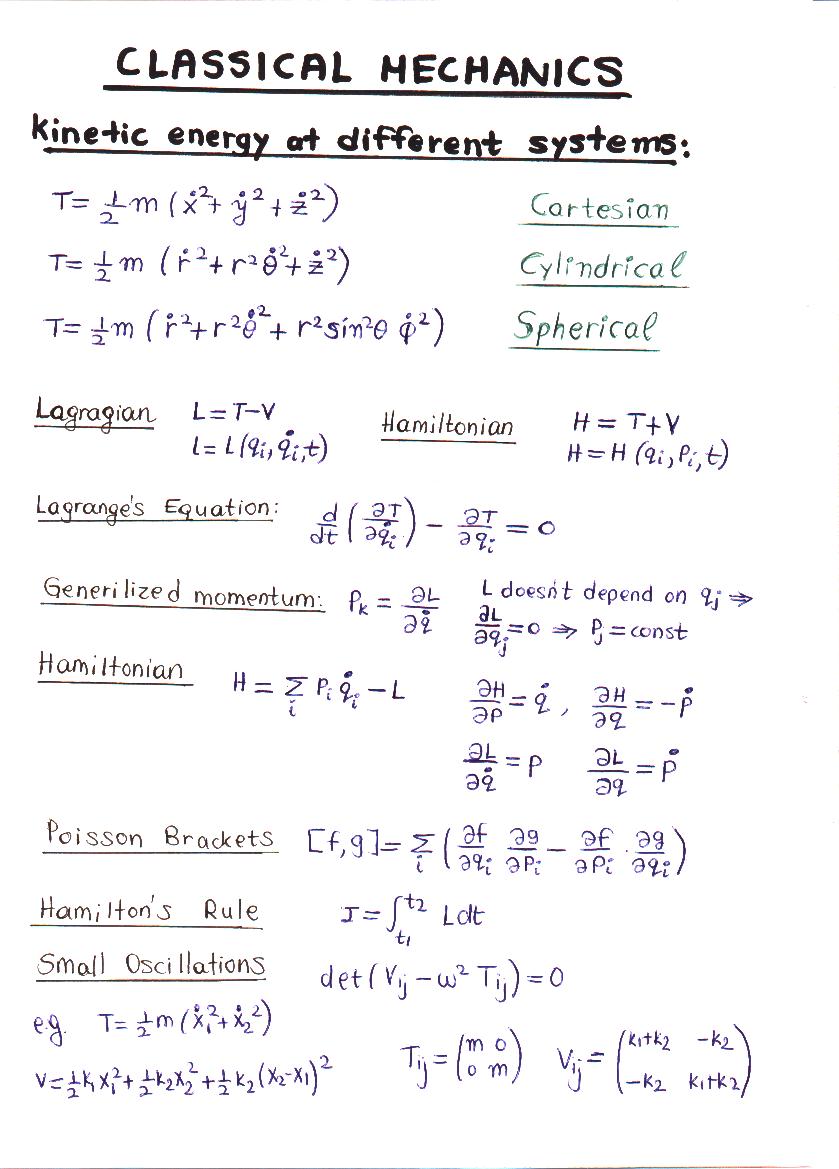 CLASSICAL MECHANICS
kinetic energy at different systems:
T= ½ m (ẋ²+ ẏ²+ ż²) Cartesian
T= ½ m (ṙ²+ r²θ̇²+ ż²) Cylindrical
T= ½ m (ṙ²+ r²θ̇²+ r²sin²θ φ̇²) Spherical
Lagragian L=T-V Hamiltonian H = T+V
L= L(qi, q̇i, t) H=H (qi, Pi, t)
Lagrange's Equation: d/dt (∂T/∂q̇i) - ∂T/∂qi = 0
Generilized momentum: Pk = ∂L/∂q̇ L doesn't depend on qj ⇒
∂L/∂qj =0 ⇒ Pj = const
Hamiltonian H = Σi Pi q̇i - L ∂H/∂P = q̇, ∂H/∂q = -Ṗ
∂L/∂q̇ = P ∂L/∂q = Ṗ
Poisson Brackets [f,g]= Σi (∂f/∂qi ∂g/∂Pi - ∂f/∂Pi · ∂g/∂qi)
Hamilton's Rule I = ∫t1^t2 Ldt
Small Oscillations det(Vij - ω² Tij) = 0
e.g. T= ½ m (ẋ1²+ẋ2²)
V=½k1x1²+½k2x2²+½k2(x2-x1)² Tij = (m 0 0 m) Vij = (k1+k2 -k2 -k2 k1+k2)